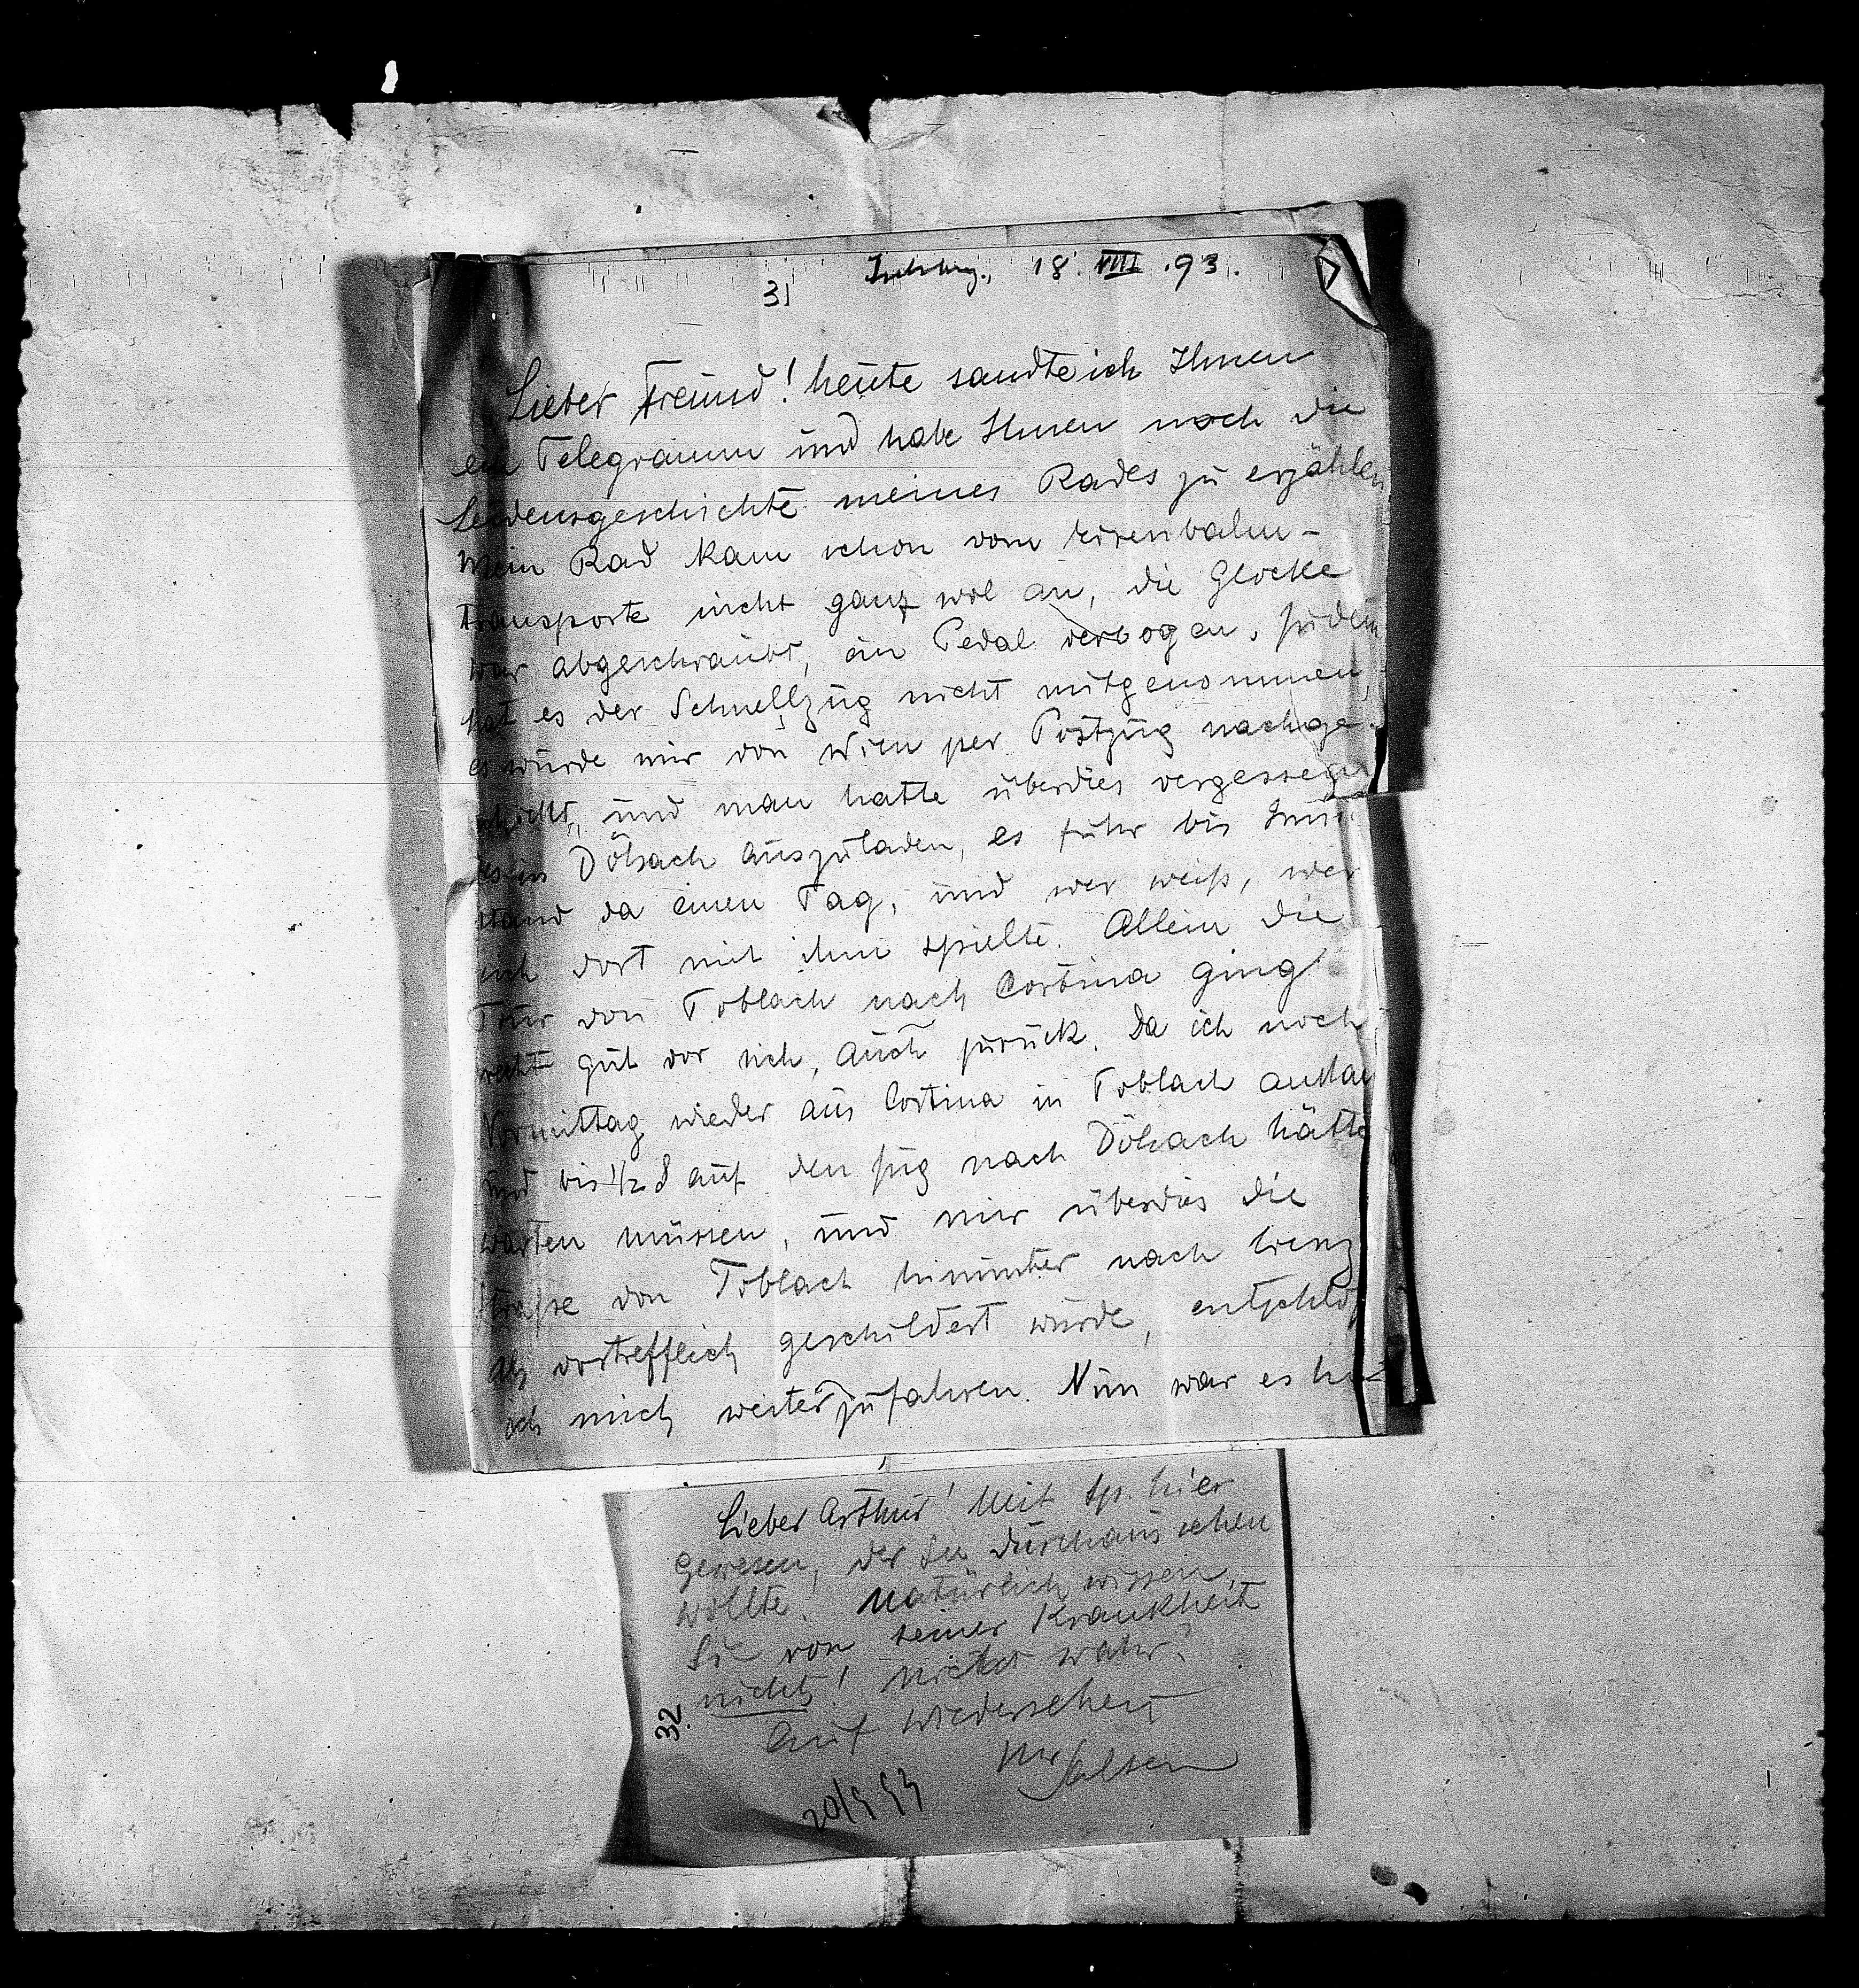 31
Iselsberg, 18. VIII .93.
Lieber Freund! heute sandte ich Ihnen
ein Telegramm und habe Ihnen noch die
Leidensgeschichte meines Rades zu erzählen
Mein Rad kam schon vom Eisenbahn-
transporte nicht ganz wol an, die Glocke
war abgeschraubt, ein Pedal verbogen, zudem
hat es der Schnellzug nicht mitgenommen,
es wurde mir von Wien per Postzug nachge-
schickt, und man hatte überdies vergessen
es in Dölsach auszuladen, es fuhr bis
stand da einen Tag, und wer weiß, wer
sich dort mit ihm spielte. Allein die
Tour von Toblach nach Cortina ging
recht gut vor sich, auch zurück. Da ich noch
Vormittag wieder aus Cortina in Toblach ankam
und bis ½ 8 auf den Zug nach Dölsach hätte
warten müssen, und mir überdies die
Straße von Toblach hinunter nach Lienz
als vortrefflich geschildert wurde, entschloß
ich mich weiterzufahren. Nun war es
Lieber Arthur! Mit Sp. hier
gewesen, der Sie durchaus sehen
wollte. Natürlich wissen
Sie von seiner Krankheit
nichts! Nicht wahr?
Auf Wiedersehen
Ihr Salten
32
20/9 93